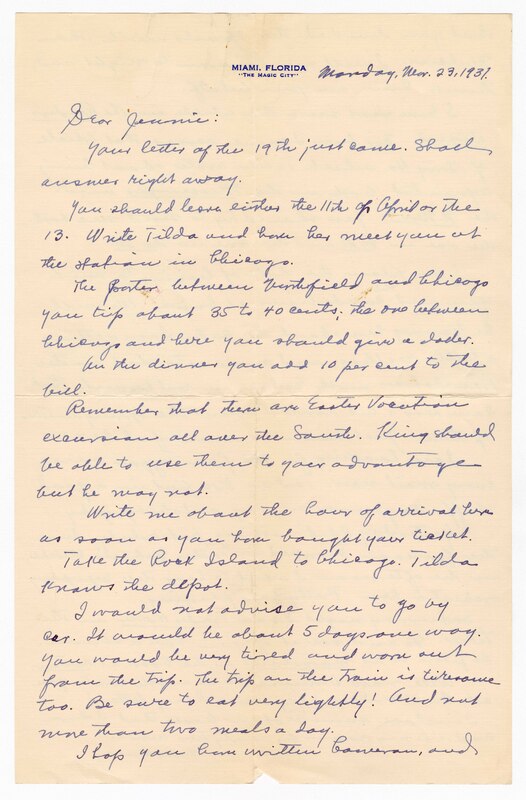 MIAMI, FLORIDA
"THE MAGIC CITY"
Monday, Mar. 23, 1931.
Dear Jennie:
Your letter of the 19th just came. Shall
answer right away.
You should leave either the 11th of April or the
13. Write Tilda and have her meet you at
the station in Chicago.
The porter between Northfield and Chicago
you tip about 35 to 40 cents; the one between
Chicago and here you should give a dollar.
On the dinner you add 10 per cent to the
bill.
Remember that there are Easter Vacation
excursion all over the South. King should
be able to use them to your advantage
but he may not.
Write me about the hour of arrival here
as soon as you have bought your ticket.
Take the Rock Island to Chicago. Tilda
knows the depot.
I would not advise you to go by
car. It would be about 5 days one way.
You would be very tired and worn out
from the trip. The trip on the train is tiresome
too. Be sure to eat very lightly! And not
more than two meals a day.
I hope you have written Cameron, and